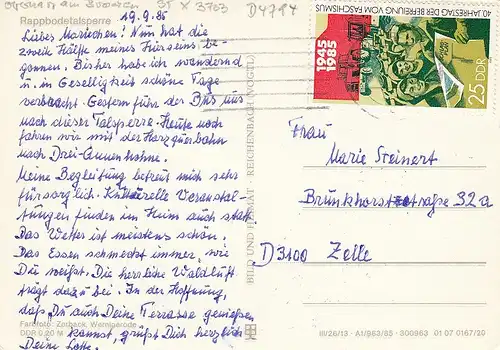 SY X 3703 D4794
Rappbodetalsperre
19.9.85
Liebes Mariechen! Nun hat die
zweite Hälfte meines Hierseins be-
gonnen. Bisher habe ich wandernd
u. in Geselligkeit schöne Tage
verbracht. Gestern fuhr der Bus uns
nach dieser Talsperre. Heute noch
fahren wir mit der Harzquerbahn
nach Drei-Annen-Hohne.
Meine Begleitung betreut mich sehr
fürsorglich. Kulturelle Veranstal-
tungen finden im Heim auch statt.
Das Wetter ist meistens schön.
Das Essen schmeckt immer, wie
Du weißt. Die herrliche Waldluft
trägt dazu bei. In der Hoffnung,
daß Du auch Deine Terrasse genießen
kannst, grüßt Dich herzlich
Deine Lotte.
Farbfoto: Zorback, Wernigerode
DDR 0,20 M
BILD UND HEIMAT REICHENBACH (VOGTL)
40. JAHRESTAG DER BEFREIUNG VOM FASCHISMUS
1945
1985
25 DDR
Frau
Marie Steinert
Brunkhorststraße 32a
D3100 Zelle
III/26/13 · A1/963/85 · 300963 01 07 0167/20